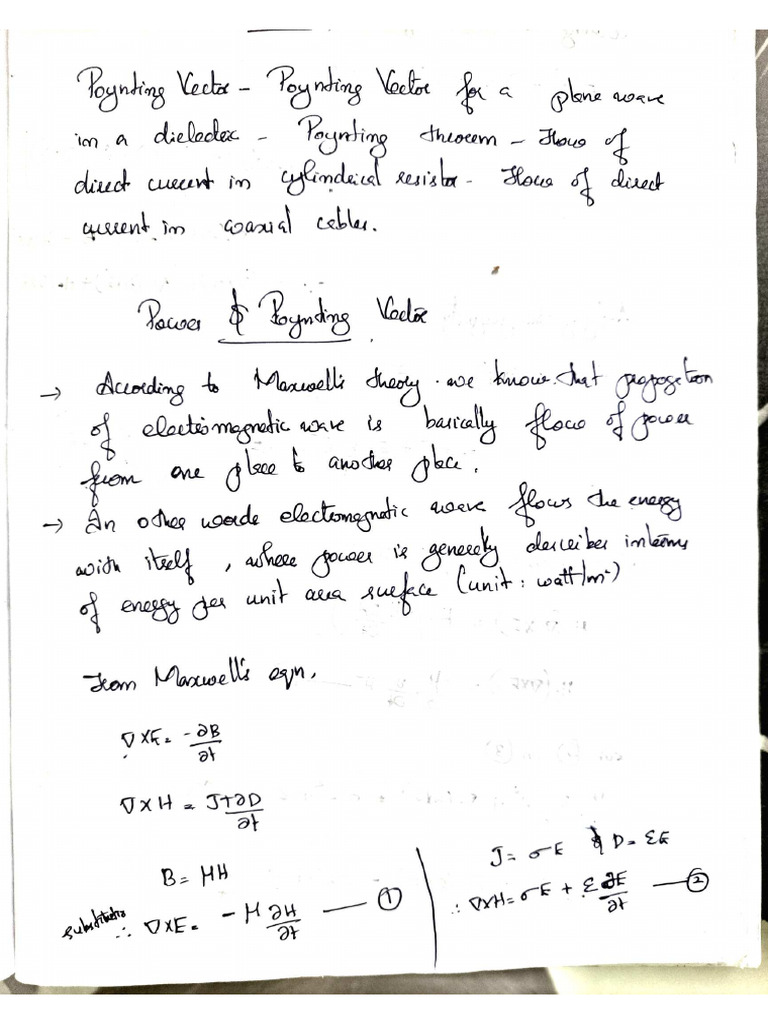 Poynting Vector - Poynting Vector for a plane wave
in a dielectric - Poynting theorem - Flow of
direct current in cylindrical resistor - Flow of direct
current in coaxial cables.
Power & Poynting Vector
→ According to Maxwell's theory we know that propogation
of electromagnetic wave is basically flow of power
from one place to another place.
→ In other words electromagnetic wave flows the energy
with itself, where power is generely describes interms
of energy per unit area surface (unit: watt/m²)
From Maxwell's eqn.
∇×E = -∂B/∂t
∇×H = J+∂D/∂t
B = μH
substitute ∴ ∇×E = -μ ∂H/∂t — ①
J = σE & D = εE
∴ ∇×H = σE + ε ∂E/∂t — ②